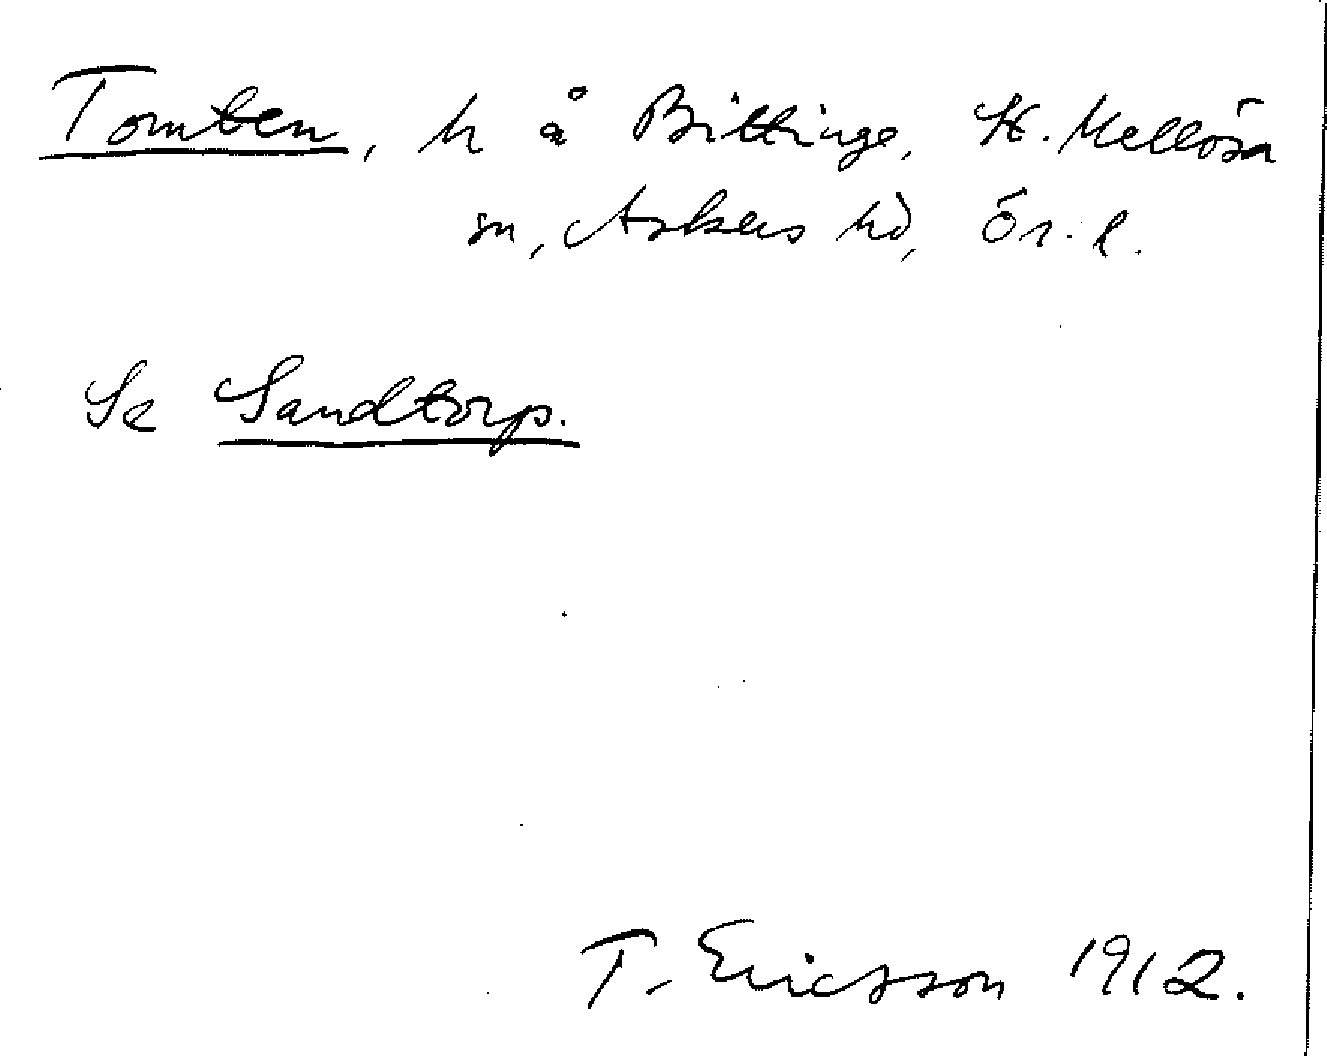 Tomten, h å Bittinge, St. Mellösa
sn, Askers hd, Ör. l.
Se Sandtorp.
T. Ericsson 1912.